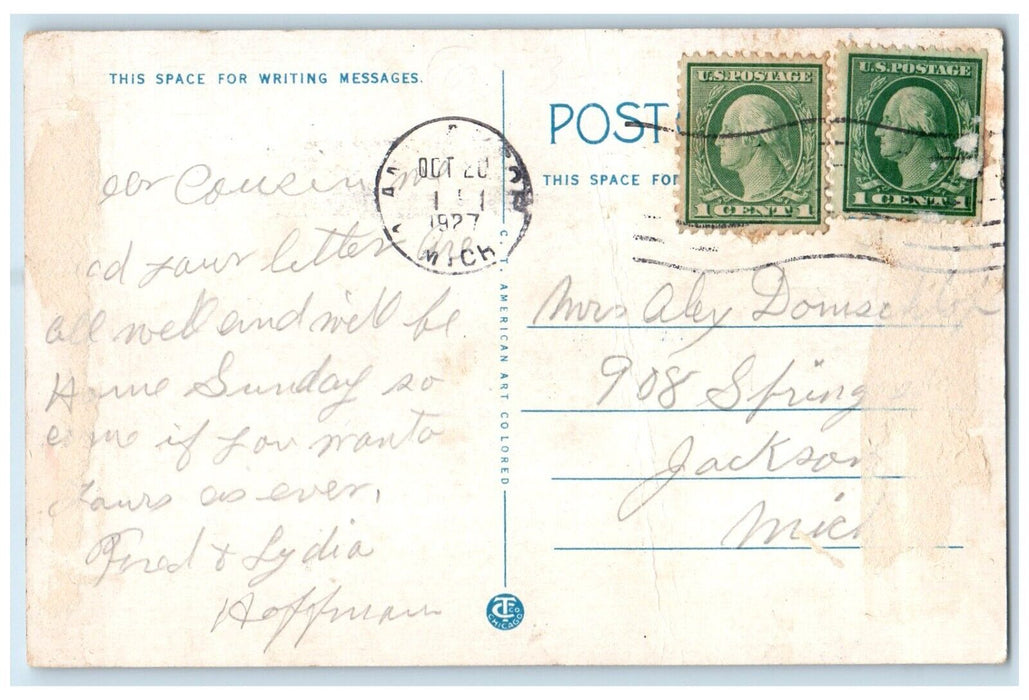 THIS SPACE FOR WRITING MESSAGES.
ear Cousin
cd your letter are
all well and will be
Home Sunday so
come if you want to
Yours as ever,
Fred & Lydia
Hoffman
OCT 20
1927
MICH
C. T. AMERICAN ART COLORED
CTCO
CHICAGO
POST
THIS SPACE FOR
U.S.POSTAGE
1 CENT 1
U.S.POSTAGE
1 CENT 1
Mrs Alex
908 Spring
Jackson
Mich